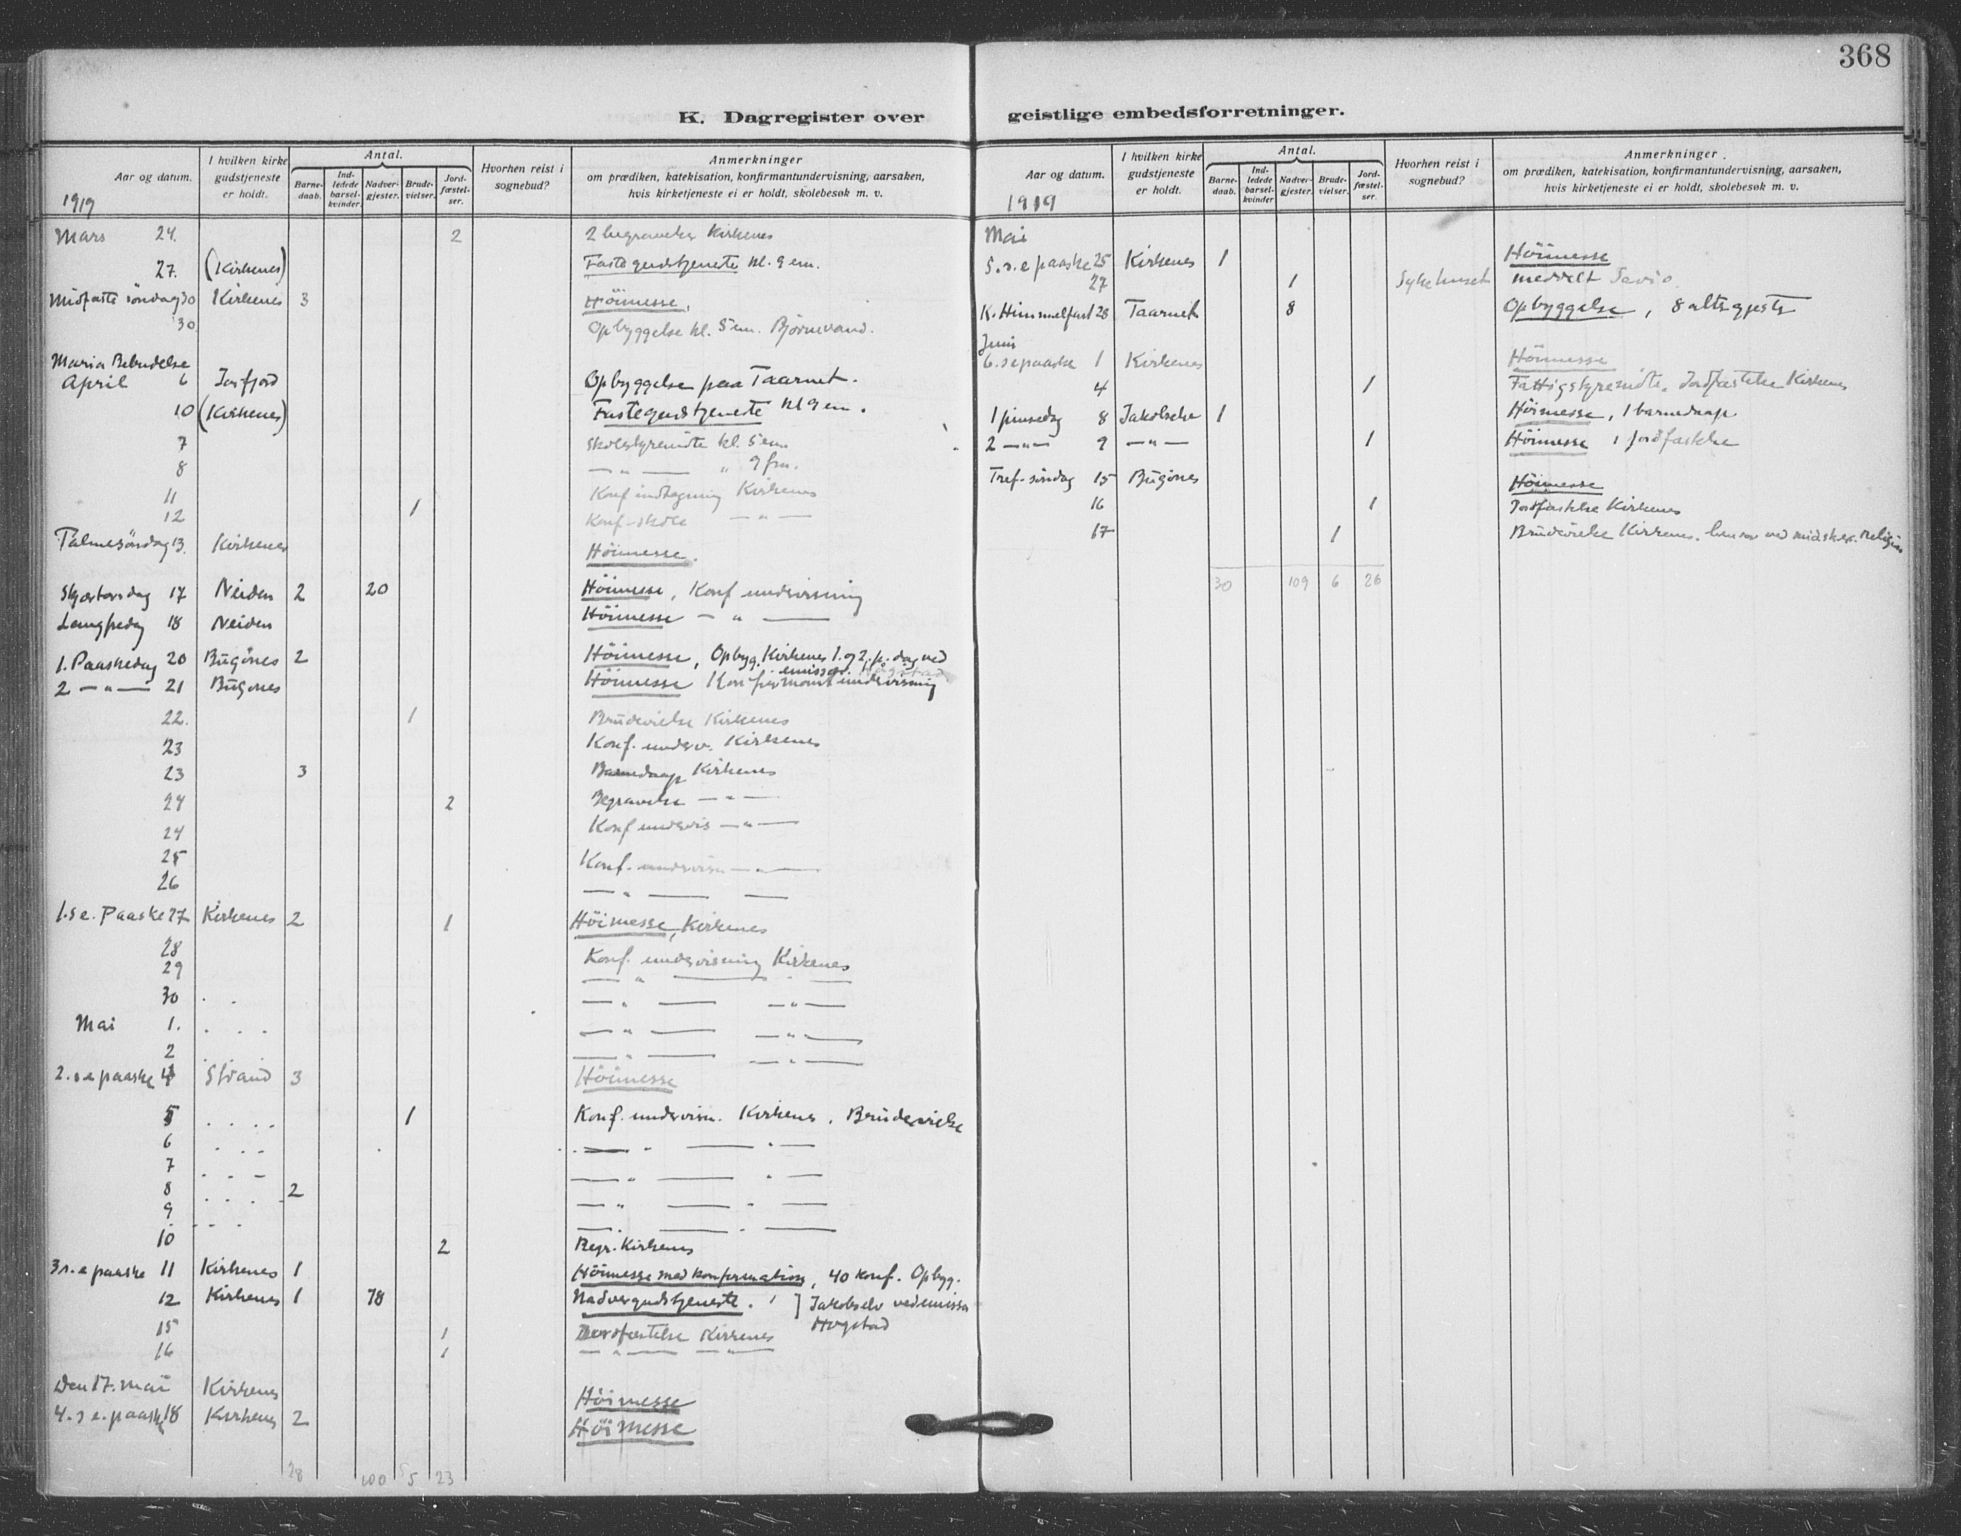 368
K. Dagregister over
Aar og datum.
1919
I hvilken kirke gudstjeneste er holdt.
Antal.
Barne-daab.
Ind-ledede barsel-kvinder.
Nadver-gjester.
Brude-vielser.
Jord-fæstel-ser.
Hvorhen reist i sognebud?
Anmerkninger
om prædiken, katekisation, konfirmantundervisning, aarsaken,
hvis kirketjeneste ei er holdt, skolebesøk m. v.
Mars 24. 2 2 begravelser Kirkenes
27. (Kirkenes) Fastegudstjeneste kl. 9 em.
Midfaste söndag 30 Kirkenes 3 Höimesse.
30 Opbyggelse kl. 5 em. Bjørnevand.
Maria Bebudelse
April 6 Jarfjord Opbyggelse paa Taarnet.
10 (Kirkenes) Fastegudstjeneste kl 9 em.
7 Skolestyremöte kl. 5 em.
8 — " — " 9 fm.
11 Konf indtagning Kirkenes
12 1 Konf-skole — " —
Palmesöndag 13. Kirkenes Höimesse.
Skjærtorsdag 17 Neiden 2 20 Höimesse, Konf undervisning
Langfredag 18 Neiden Höimesse — " —
1. Paaskedag 20 Bugönes 2 Höimesse, Opbyg. Kirkenes 1. og 2. p. dag ved
emissær Høgstad
2 — " — 21 Bugönes Höimesse Konfirmantundervisning
22. 1 Brudevielse Kirkenes
23 Konf. underv. Kirkenes
23 3 Barnedaap Kirkenes
24 2 Begravelse — " —
24 Konf undervis — " —
25 Konf. undervisn — " —
26 — " — —
1. s e. Paaske 27 Kirkenes 2 1 Höimesse, Kirkenes
28 Konf. undervisning Kirkenes
29 — " — — " —
30 — " — — " —
Mai 1. — " — — " —
2 — " — — " —
2. s e paaske 4 Strand 3 Höimesse
5 1 Konf. undervisn. Kirkenes. Brudevielse
6 — " — " —
7 — " — " —
8 2 — " — " —
9 — " — " —
10 2 Begr. Kirkenes
3 s. e paaske 11 Kirkenes 1 Höimesse med konfirmation, 40 konf. Opbyg.
12 Kirkenes 1 78 Nadvergudstjeneste. Jakobselv ved emissær
Høgstad
15 1 Jordfæstelse Kirkenes
16 1 — " — — " —
Den 17. mai Kirkenes Höimesse
4. s e. paaske 18 Kirkenes 2 Höimesse
28 100 5 23
geistlige embedsforretninger.
Aar og datum.
1919
I hvilken kirke gudstjeneste er holdt.
Antal.
Barne-daab.
Ind-ledede barsel-kvinder
Nadver-gjester.
Brude-vielser.
Jord-fæstel-ser.
Hvorhen reist i sognebud?
Anmerkninger.
om prædiken, katekisation, konfirmantundervisning, aarsaken,
hvis kirketjeneste ei er holdt, skolebesøk m. v.
Mai
5. s. e paaske 25 Kirkenes 1 Höimesse
27 1 Sykehuset meddelt Savio.
K. Himmelfart 28 Taarnet 8 Opbyggelse, 8 altergjester
Juni
6. s e paaske 1 Kirkenes Höimesse
4 1 Fattigstyremöte. Jordfæstelse Kirkenes
1 pinsedag 8 Jakobselv 1 Höimesse, 1 barnedaap
2 — " — 9 — " — 1 Höimesse 1 jordfæstelse
Tref. söndag 15 Bugönes Höimesse
16 1 Jordfæstelse Kirkenes
17 1 Brudevielse Kirkenes. Censor ved midskex. religion
30 109 6 26